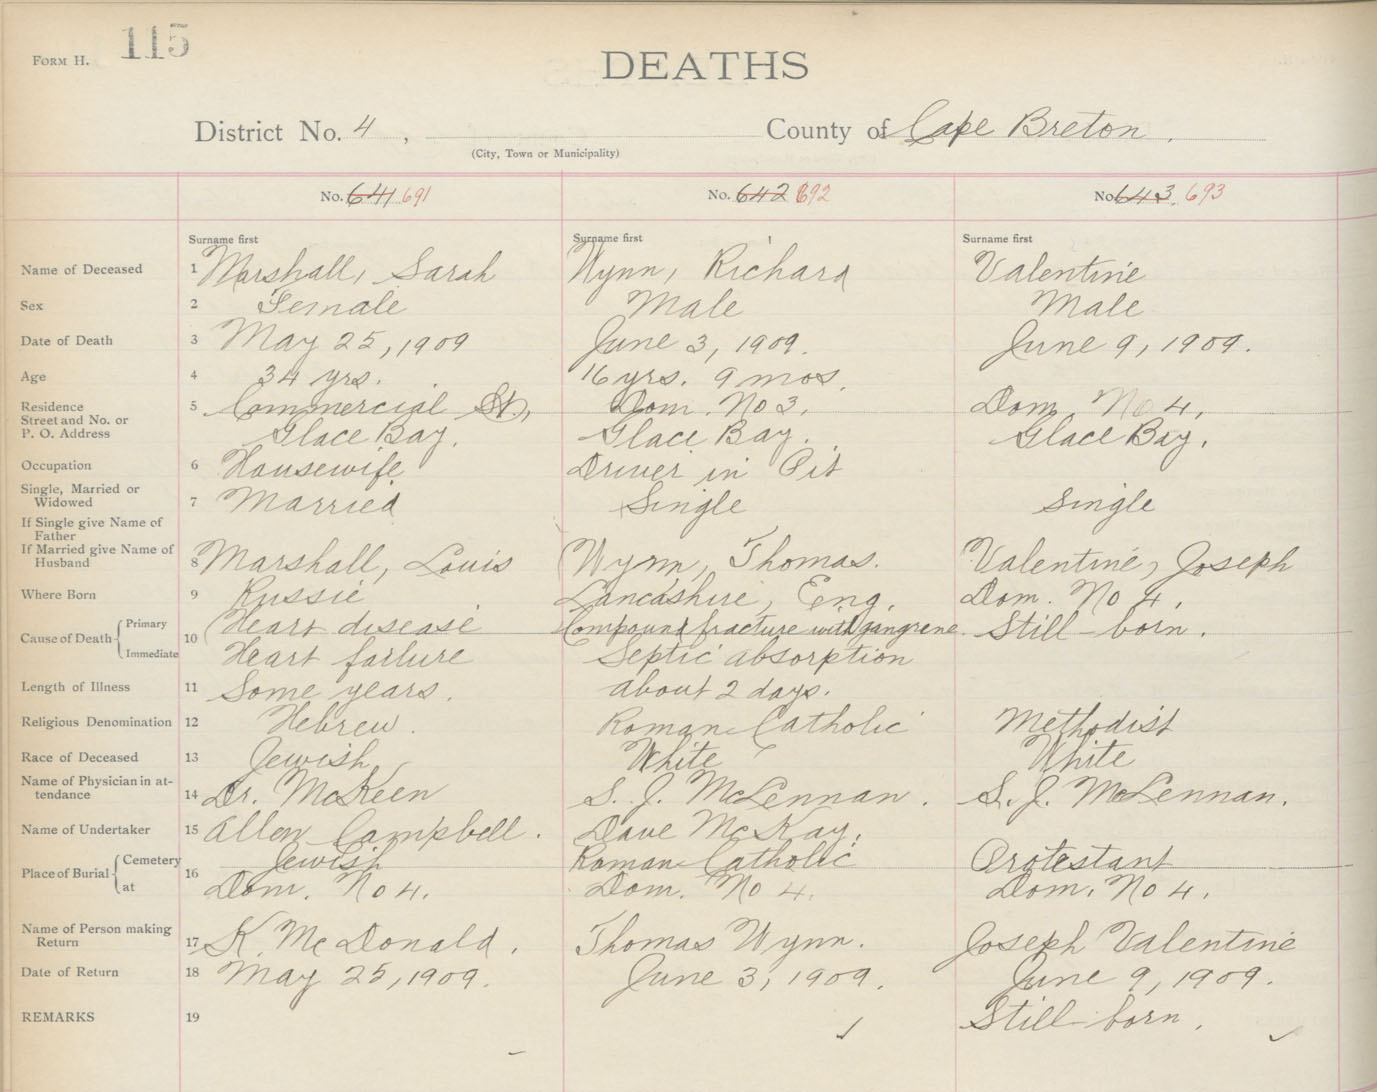 FORM H. 115
DEATHS
District No. 4 , County of Cape Breton.
(City, Town or Municipality)
No. 641 691 No. 642 692 No. 643 693
Surname first Surname first Surname first
Name of Deceased 1 Marshall, Sarah Wynn, Richard Valentine
Sex 2 Female Male Male
Date of Death 3 May 25, 1909 June 3, 1909. June 9, 1909.
Age 4 34 yrs. 16 yrs. 9 mos.
Residence 5 Commercial St., Dom. No 3, Dom. No 4,
Street and No. or
P. O. Address Glace Bay. Glace Bay. Glace Bay.
Occupation 6 Housewife Driver in Pit
Single, Married or
Widowed 7 Married Single Single
If Single give Name of
Father
If Married give Name of
Husband 8 Marshall, Louis Wynn, Thomas. Valentine, Joseph
Where Born 9 Russie Lancashire, Eng. Dom. No 4.
Cause of Death Primary 10 Heart disease Compound fracture with gangrene. Still-born.
Immediate Heart farlure Septic absorption
Length of Illness 11 Some years. about 2 days.
Religious Denomination 12 Hebrew. Roman Catholic Methodist
Race of Deceased 13 Jewish White White
Name of Physician in at-
tendance 14 Dr. McKeen S. J. McLennan. S. J. McLennan.
Name of Undertaker 15 Allen Campbell. Dave McKay.
Place of Burial Cemetery 16 Jewish Roman Catholic Protestant
at Dom. No 4. Dom. No 4. Dom. No 4.
Name of Person making
Return 17 K. McDonald. Thomas Wynn. Joseph Valentine
Date of Return 18 May 25, 1909. June 3, 1909. June 9, 1909.
REMARKS 19 Still-born.